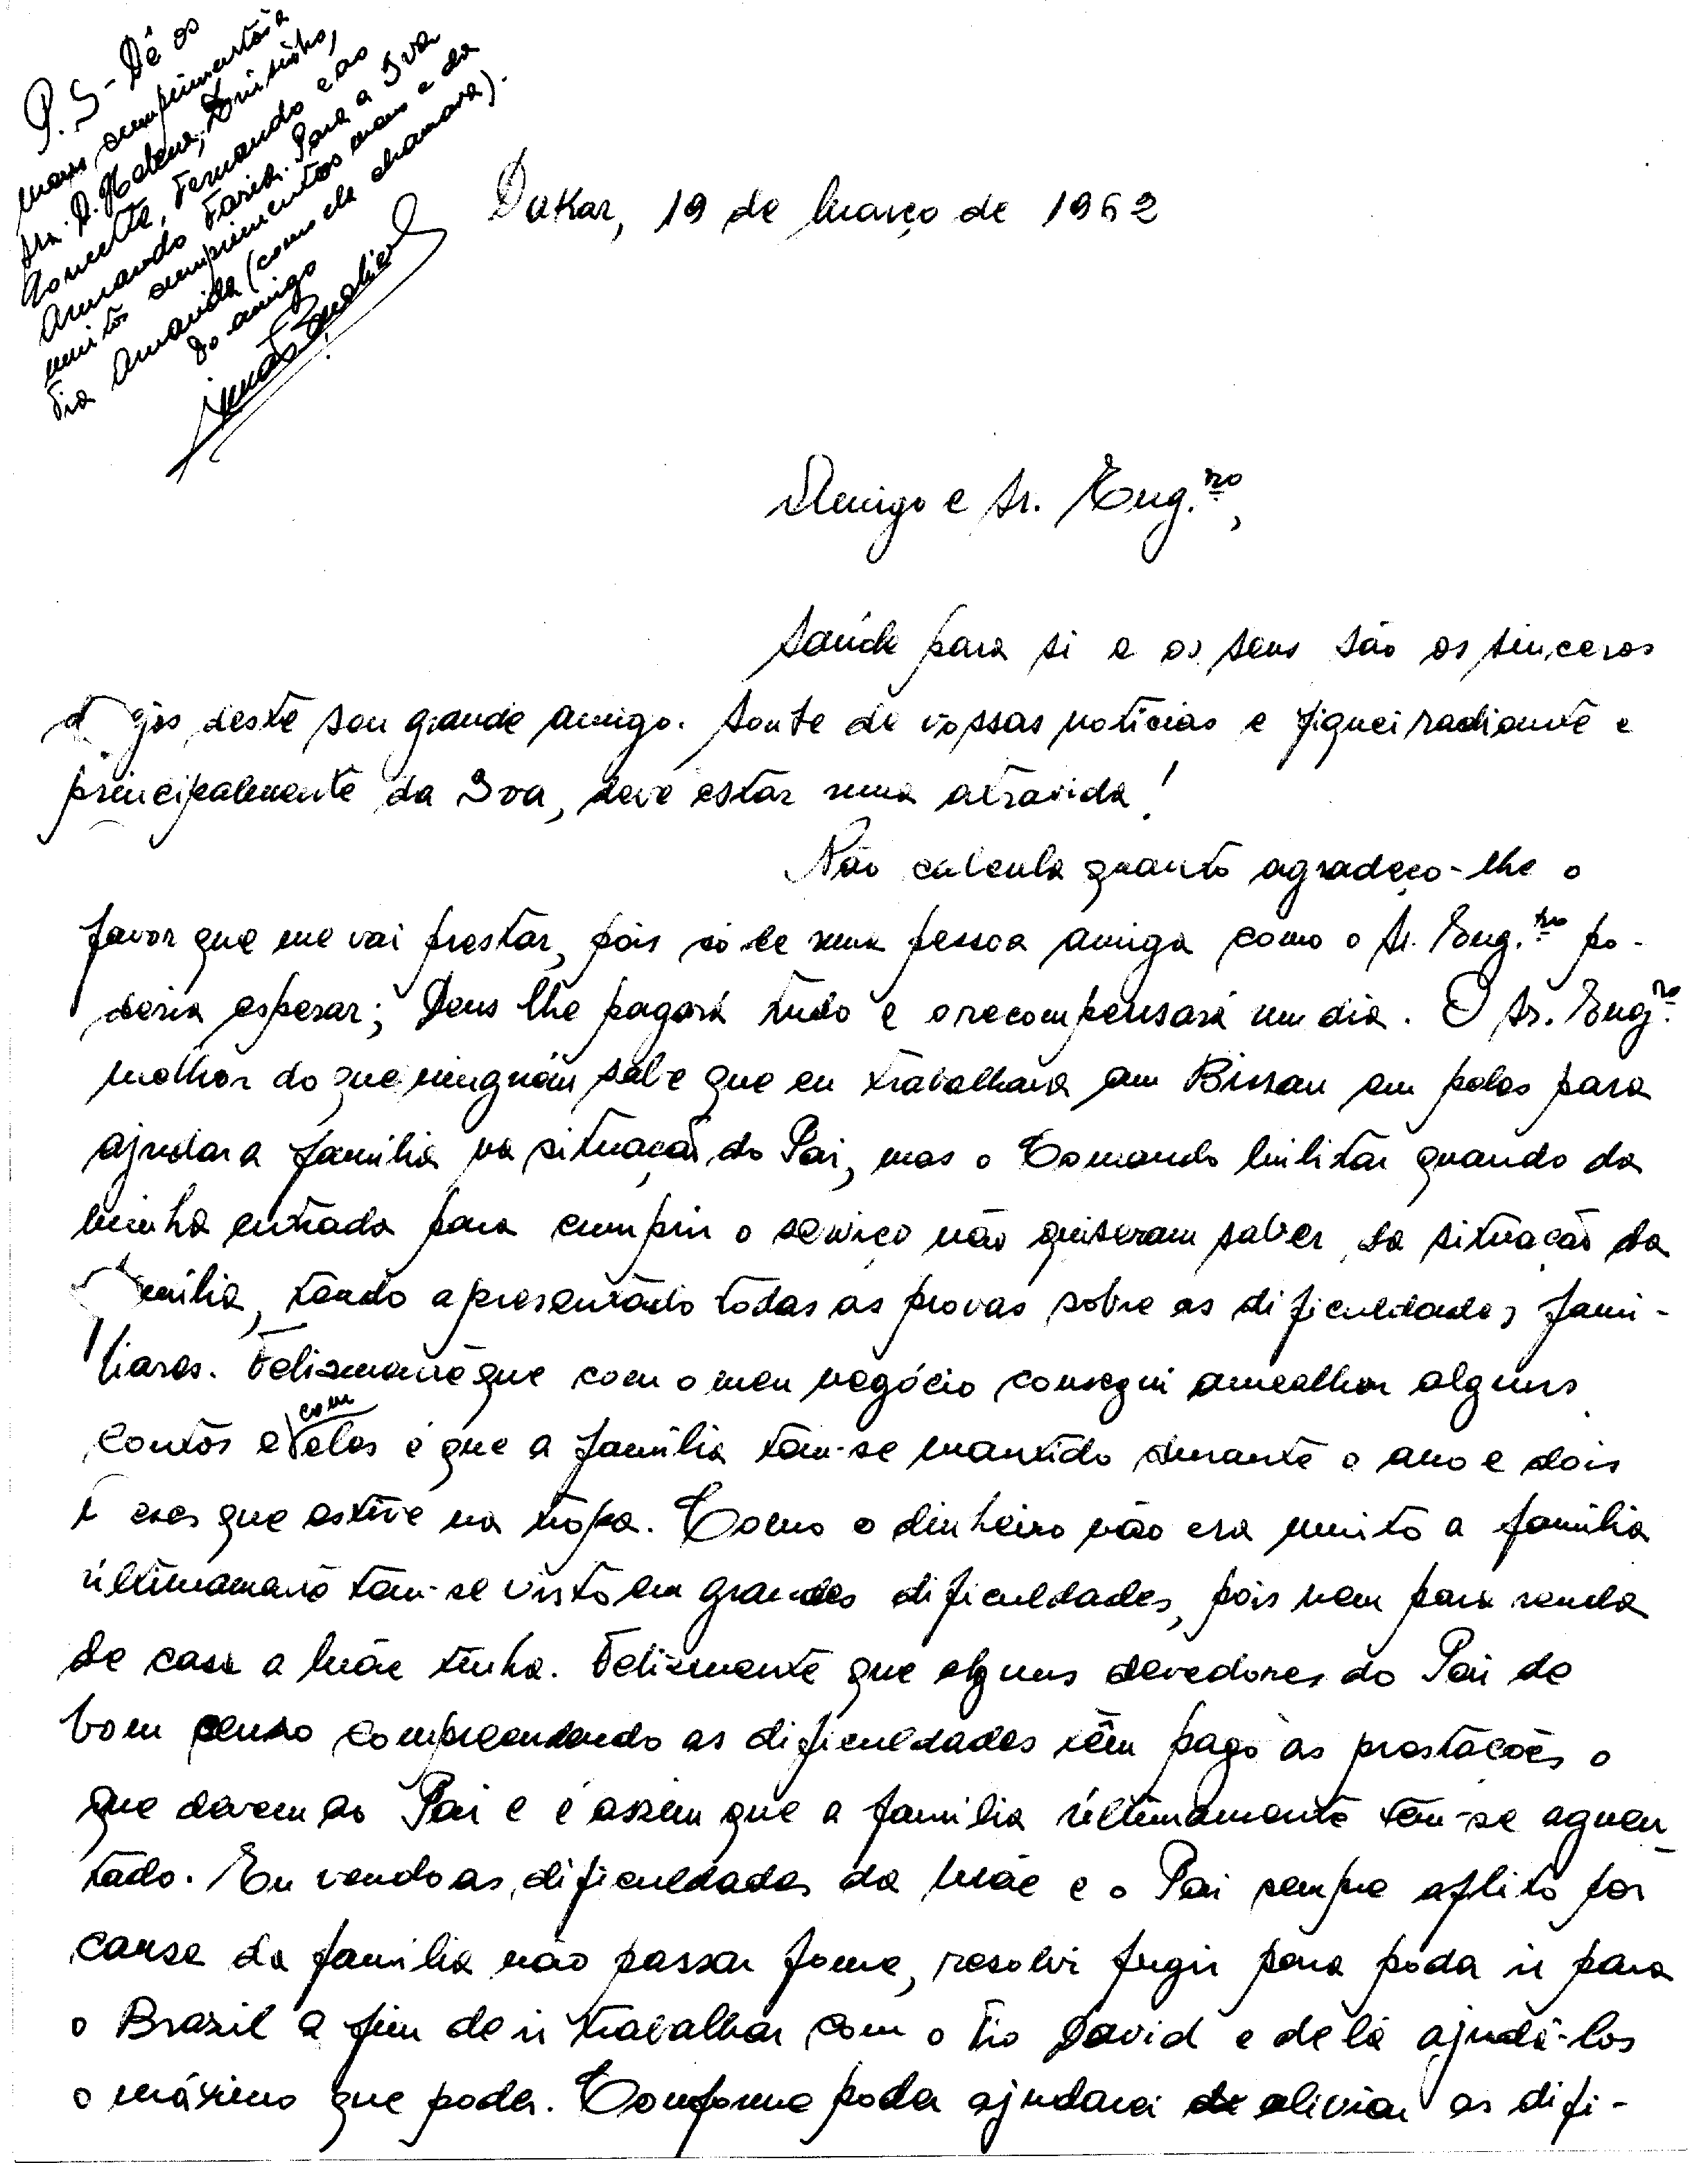 P.S - Dê os
meus cumprimentos à
Sra. D. Helena,
Fernando e ao
Armando Farid. Para a Iva
muitos cumprimentos meus e da
tia Amarida (como ela chamava).
Do amigo
Dakar, 19 de Março de 1962
Amigo e Sr. Eng.ro,
Saúde para si e os seus são os sinceros
deste seu grande amigo. Soube de vossas notícias e fiquei radiante e
principalmente da Iva, deve estar uma atravida!
Não calcula quanto agradeço-lhe o
favor que me vai prestar, pois só de uma pessoa amiga como o Sr. Eng.ro po-
deria esperar; Deus lhe pagará tudo e o recompensará um dia. O Sr. Engro.
melhor do que ninguém sabe que eu trabalhava em Bissau em pelos para
ajudar a família na situação do Pai, mas o Comando Militar quando da
minha entrada para cumprir o serviço não quiseram saber da situação da
família, tendo apresentado todas as provas sobre as dificuldades fami-
liares. Felizmente que com o meu negócio consegui amealhar alguns
contos e com eles é que a família tem-se mantido durante o ano e dois
meses que estive na tropa. Como o dinheiro não era muito a família
últimamente tem-se visto em grandes dificuldades, pois nem para renda
de casa a Mãe tinha. Felizmente que alguns devedores do Pai de
bom censo compreendendo as dificuldades têm pago às prestações o
que devem ao Pai e é assim que a família últimamente tem-se aguen-
tado. Eu vendo as dificuldades da Mãe e o Pai sempre aflito por
causa da família não passar fome, resolvi fugir para poder ir para
o Brazil a fim de ir trabalhar com o tio David e de lá ajudá-los
o máximo que poder. Conforme poder ajudarei de aliviar as difi-